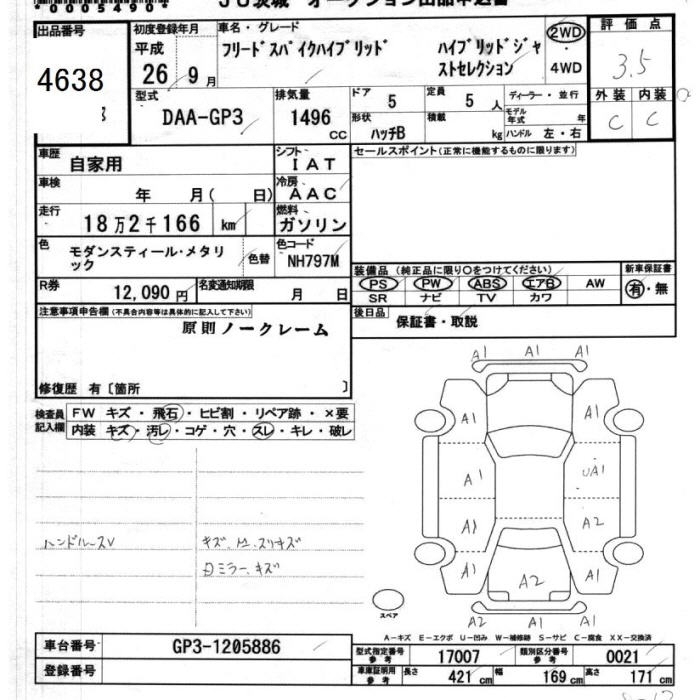 *0005490*
JU茨城 オークション出品申込書
出品番号
4638
初度登録年月
平成
26年9月
車名・グレード
フリードスパイクハイブリッド ハイブリッドジャストセレクション
2WD
4WD
評価点
3.5
外装 内装
C C
型式
DAA-GP3
排気量
1496 CC
ドア
5
定員
5人
形状
ハッチB
積載
kg
ディーラー・並行
モデル年式 年
ハンドル 左・右
車歴
自家用
シフト
IAT
車検
年 月( 日)
冷房
AAC
走行
18万2千166 km
燃料
ガソリン
色
モダンスティール・メタリック
色替
色コード
NH797M
R券
12,090円
名変通知期限
月 日
セールスポイント(正常に機能するものに限ります)
装備品 (純正品に限り○をつけてください)
PS PW ABS エアB AW
SR ナビ TV カワ
新車保証書
有・無
後日品
保証書・取説
注意事項申告欄(不具合内容等は具体的に記入して下さい)
原則ノークレーム
修復歴 有〔箇所 〕
検査員記入欄
FW キズ・飛石・ヒビ割・リペア跡・×要
内装 キズ・汚レ・コゲ・穴・スレ・キレ・破レ
ハンドルスレ
キズ、凹、スリキズ
ミラーキズ
A1 A1 A1
A1 A1
A1 UA1
A1 A2
A1 A2 A1
A2 A1 A1
スペア
A-キズ E-エクボ U-凹み W-補修跡 S-サビ C-腐食 XX-交換済
車台番号
GP3-1205886
登録番号
型式指定番号 参考
17007
類別区分番号 参考
0021
車庫証明用 参考
長さ 421 cm 幅 169 cm 高さ 171 cm